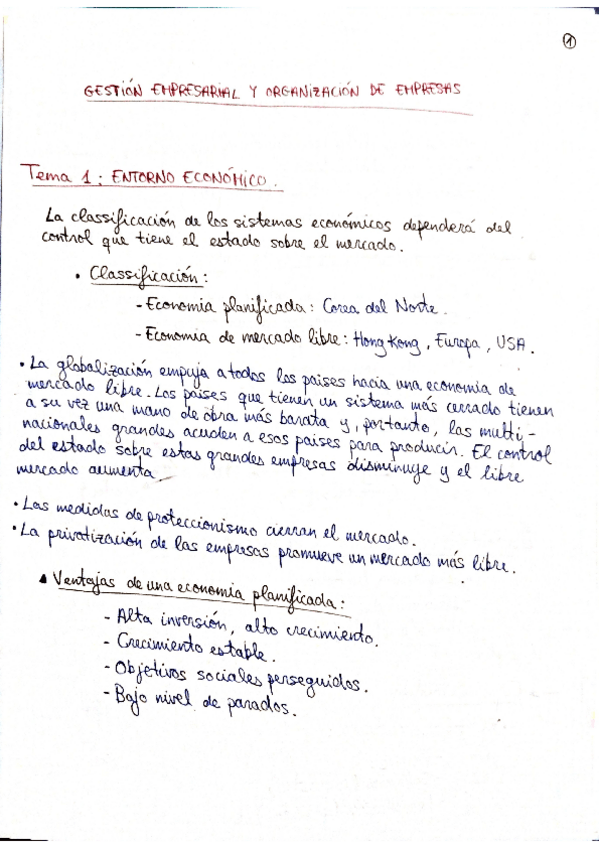 ①
GESTIÓN EMPRESARIAL Y ORGANIZACIÓN DE EMPRESAS
Tema 1: ENTORNO ECONÓMICO.
La classificación de los sistemas económicos dependerá del
control que tiene el estado sobre el mercado.
• Classificación:
- Economia planificada: Corea del Norte.
- Economia de mercado libre: Hong Kong, Europa, USA.
• La globalización empuja a todos los paises hacia una economia de
mercado libre. Los paises que tienen un sistema más cerrado tienen
a su vez una mano de obra más barata y, portanto, las multi-
nacionales grandes acuden a esos paises para producir. El control
del estado sobre estas grandes empresas disminuye y el libre
mercado aumenta.
• Las medidas de proteccionismo cierran el mercado.
• La privatización de las empresas promueve un mercado más libre.
▲ Ventajas de una economia planificada:
- Alta inversión, alto crecimiento.
- Crecimiento estable.
- Objetivos sociales perseguidos.
- Bajo nivel de parados.